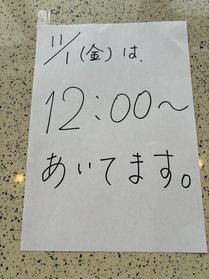 11/1(金)は、
12:00〜
あいてます。